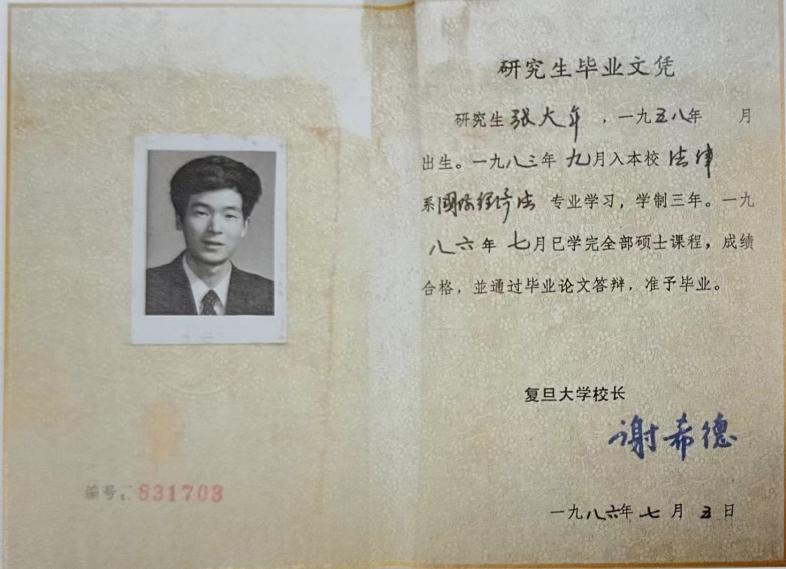 编号：831703
研究生毕业文凭
研究生张大年，一九五八年 月
出生。一九八三年九月入本校法律
系国际经济法 专业学习，学制三年。一九
八六年七月已学完全部硕士课程，成绩
合格，並通过毕业论文答辩，准予毕业。
复旦大学校长
谢希德
一九八六年七月五日